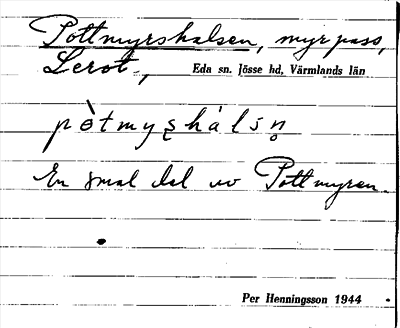 Pottmyrshalsen, myrpass,
Lerot., Eda sn. Jösse hd, Värmlands län
pòtmyʂhàlsn̥
En smal del av Pottmyren.
Per Henningsson 1944